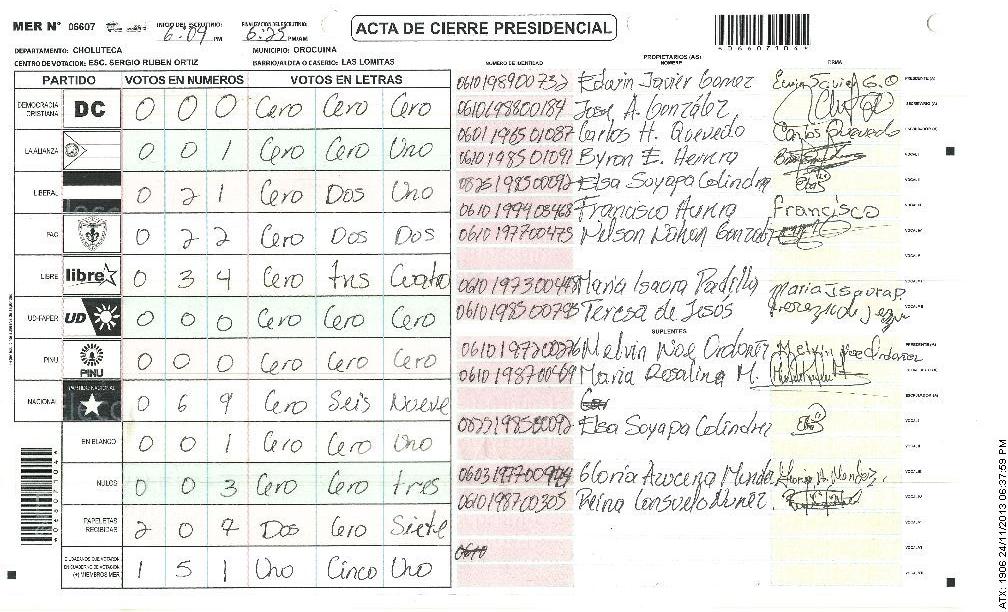 MER N° 06607 INICIO DEL ESCRUTINIO: 6:09 PM FINALIZACION DEL ESCRUTINIO: 6:25 PM/AM
ACTA DE CIERRE PRESIDENCIAL
DEPARTAMENTO: CHOLUTECA MUNICIPIO: OROCUINA
CENTRO DE VOTACION: ESC. SERGIO RUBEN ORTIZ BARRIO/ALDEA O CASERIO: LAS LOMITAS
PARTIDO VOTOS EN NUMEROS VOTOS EN LETRAS
DEMOCRACIA CRISTIANA DC 0 0 0 Cero Cero Cero
LA ALIANZA 0 0 1 Cero Cero Uno
LIBERAL 0 2 1 Cero Dos Uno
PAC 0 2 2 Cero Dos Dos
LIBRE libre 0 3 4 Cero tres Cuatro
UD-FAPER UD 0 0 0 Cero Cero Cero
PINU PINU 0 0 0 Cero Cero Cero
NACIONAL PARTIDO NACIONAL 0 6 9 Cero Seis Nueve
EN BLANCO 0 0 1 Cero Cero Uno
NULOS 0 0 3 Cero Cero tres
PAPELETAS RECIBIDAS 2 0 7 Dos Cero Siete
CIUDADANOS QUE VOTARON EN CUADERNO DE VOTACION (+) MIEMBROS MER 1 5 1 Uno Cinco Uno
PROPIETARIOS (AS):
NUMERO DE IDENTIDAD NOMBRE FIRMA
0610198900732 Edwin Javier Gomez PRESIDENTE (A)
0610198800184 Jose A. González SECRETARIO (A)
0601196501087 Carlos H. Quevedo Carlos Quevedo ESCRUTADOR (A)
0610198501091 Byron E. Herrera VOCAL I
Elsa Soyapa Colindres
Francisco Francisco
Nelson
Maria Isaura Padilla Maria Isaura P.
0610198500795 Teresa de Jesús
SUPLENTES
0610198700276 Melvin Noe Ordoñez Melvin Noe Ordoñez PRESIDENTE (A)
Maria Rosalina M. SECRETARIO (A)
ESCRUTADOR (A)
Elsa Soyapa Colindres
Gloria Azucena Gloria A. Mendez.
0610198700305 Reina Consuelo Nunez.
0610
ATX: 1906 24/11/2013 06:37:59 PM